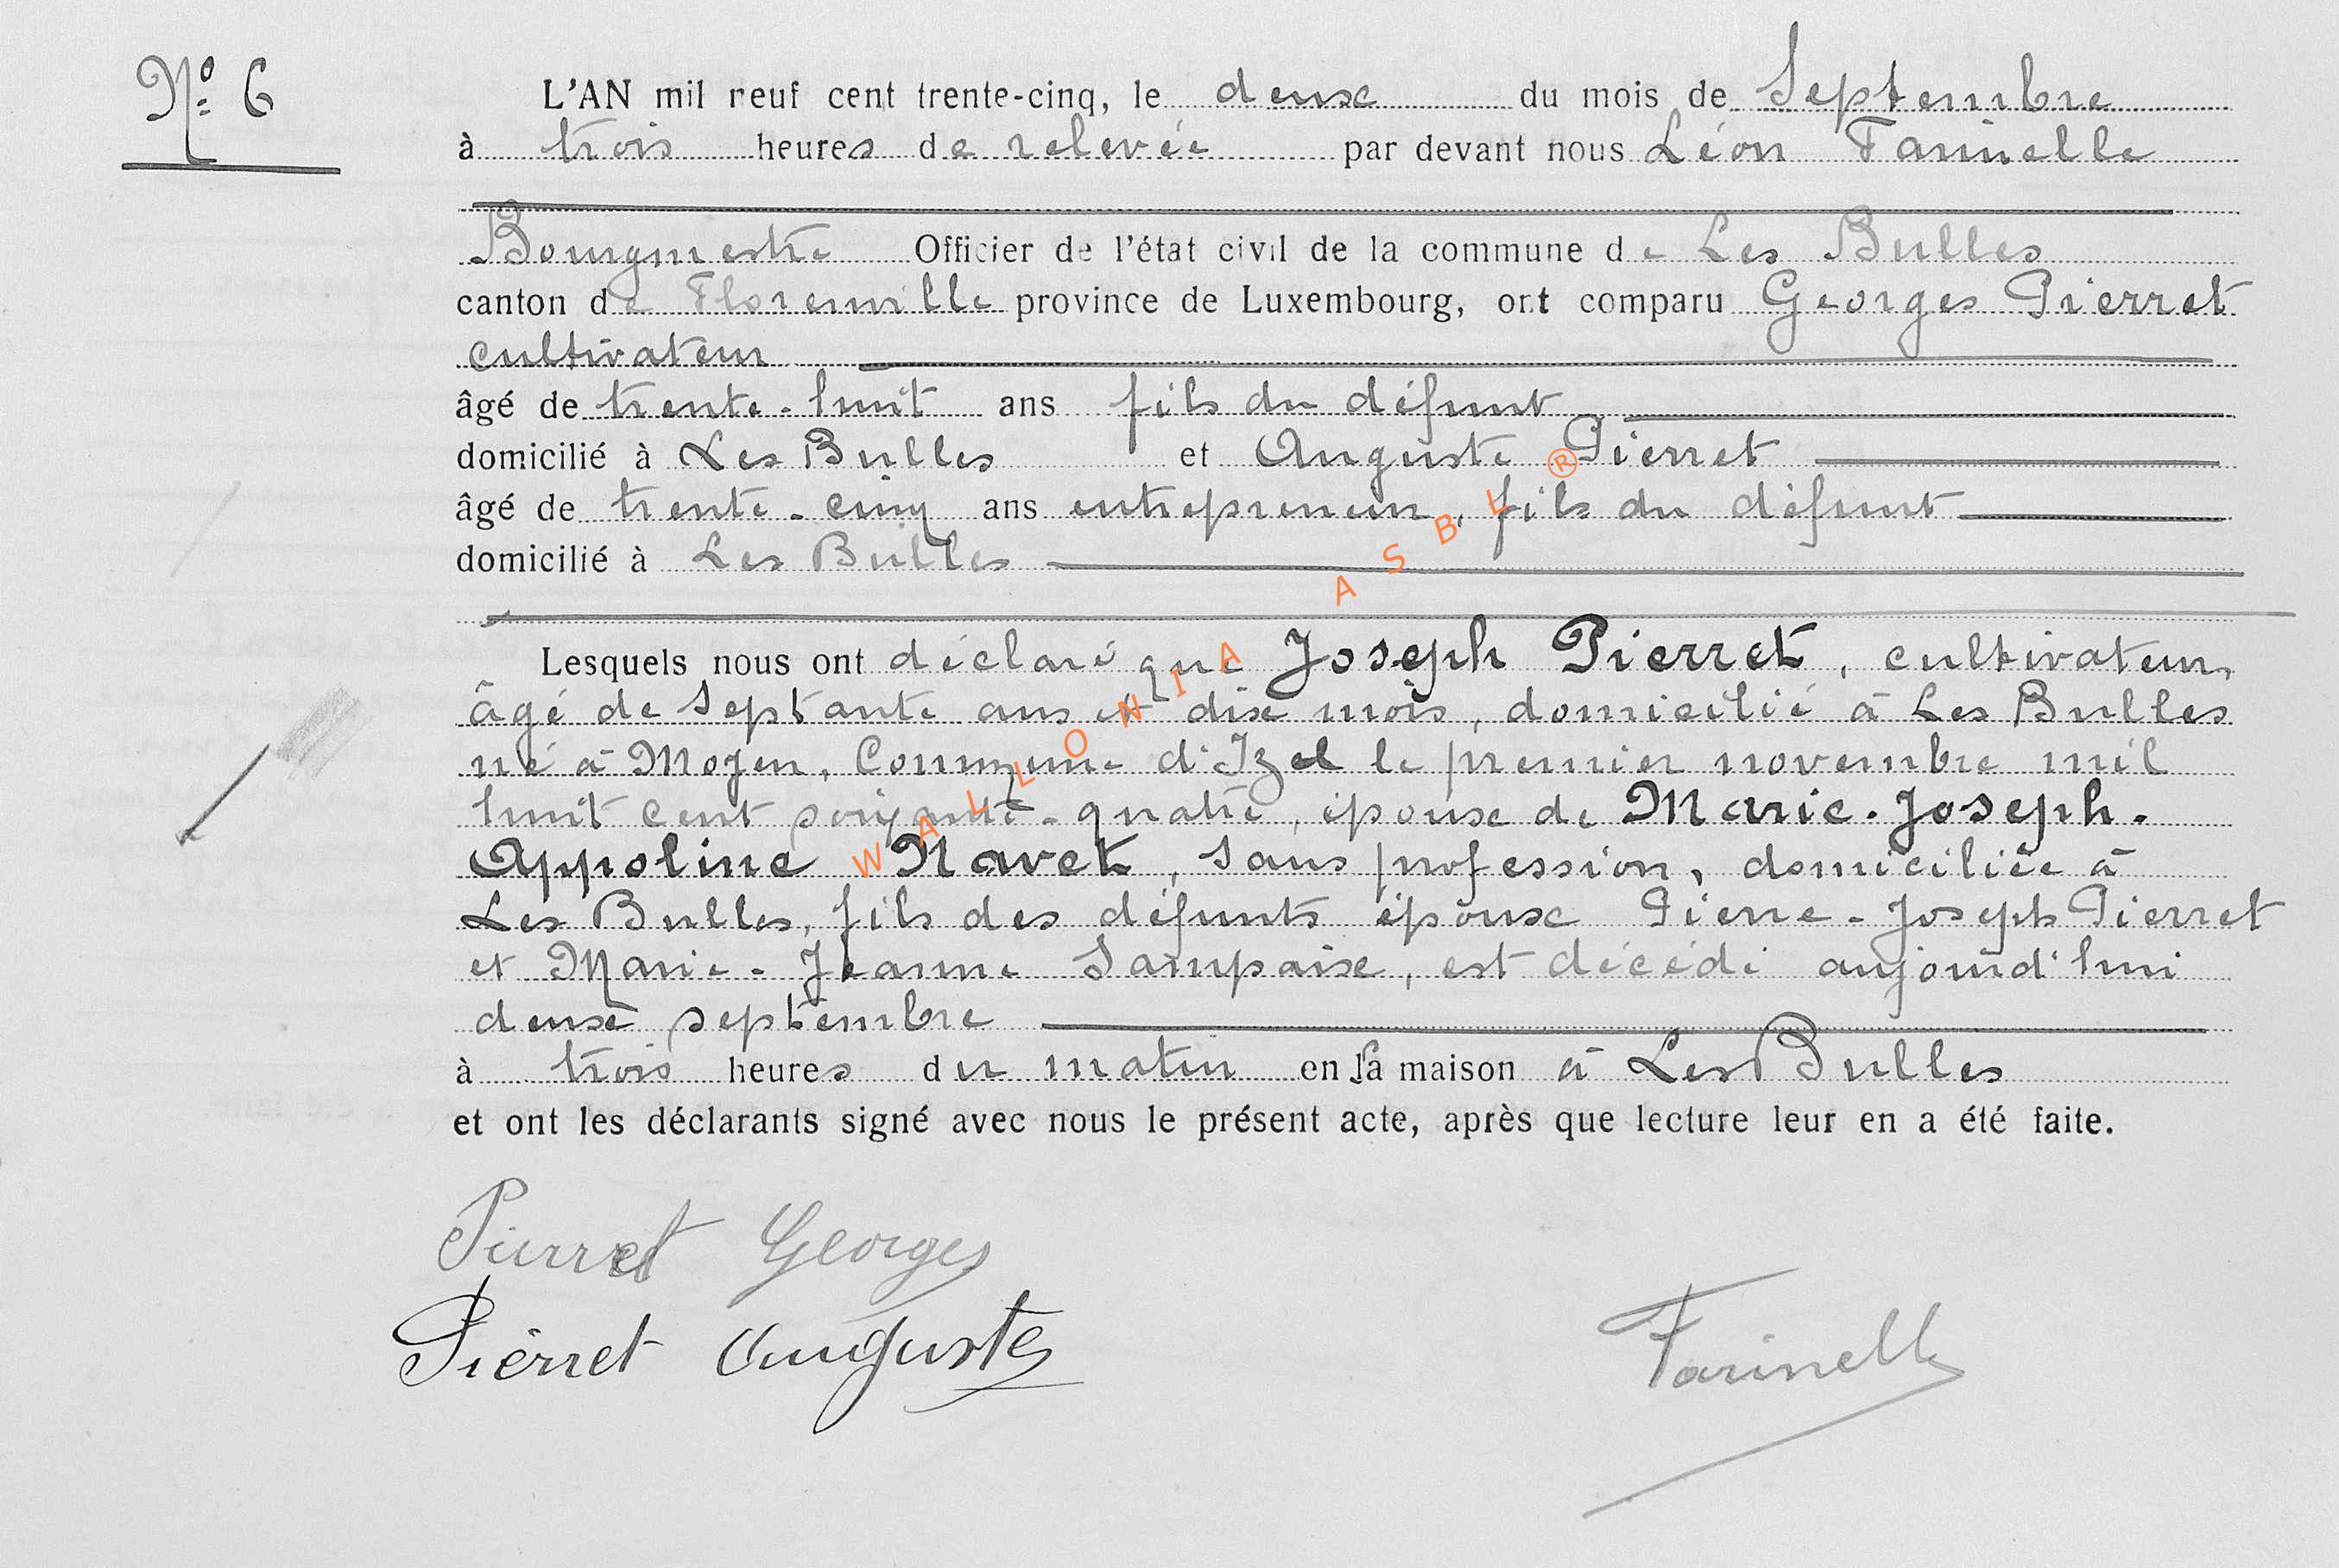 Nº 6
L'AN mil neuf cent trente-cinq, le deux du mois de Septembre
à trois heures de relevée par devant nous Léon Farinelle
Bourgmestre Officier de l'état civil de la commune de Les Bulles
canton de Florenville province de Luxembourg, ont comparu Georges Pierret
cultivateur
âgé de trente-huit ans fils du défunt
domicilié à Les Bulles et Auguste Pierret
âgé de trente-cinq ans entrepreneur, fils du défunt
domicilié à Les Bulles
Lesquels nous ont déclaré que Joseph Pierret, cultivateur,
âgé de septante ans et dix mois, domicilié à Les Bulles
né à Moyen, Commune d'Izel le premier novembre mil
huit cent soixante-quatre, époux de Marie-Joseph-
Appoline Navet, sans profession, domiciliée à
Les Bulles, fils des défunts époux Pierre-Joseph Pierret
et Marie-Jeanne Sampaix, est décédé aujourd'hui
deux septembre
à trois heures du matin en sa maison à Les Bulles
et ont les déclarants signé avec nous le présent acte, après que lecture leur en a été faite.
Pierret Georges
Pierret Auguste
Farinelle
WALLONIA ASBL ®